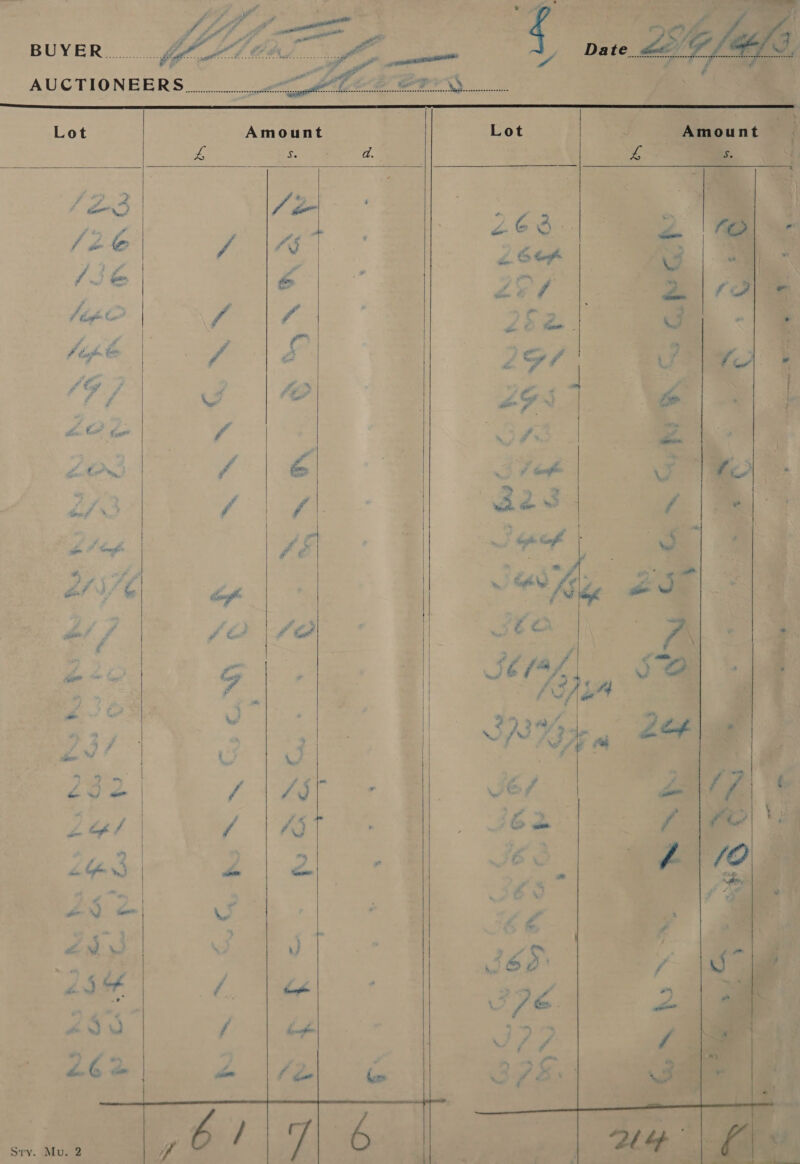 BUYER
Date
AUCTIONEERS
Lot Amount Lot Amount
£ s. d. £ s.
123 12
126 1 15
136 6
140 1 1
146 1 5
197 3 10
202 1
203 1 6
213 1 1
214 18
215/6 4
217 10 10
220
230 5
231 3 3
232 1 15
241 1 15
243 2 2
252 3
253 3 5
254 1 4
255 1 4
262 2 12 6
61 7 6
263 2 10
264 3
281 2 10
282 3
291 3 10
295 6
313 2
314 3 10
323 1
344 5
25
360 7
50
24
361 2 17 6
362 1 10
363 1 10
365
366
368 1 5
376 2
377 1
378 3
214
Sry. Mu. 2